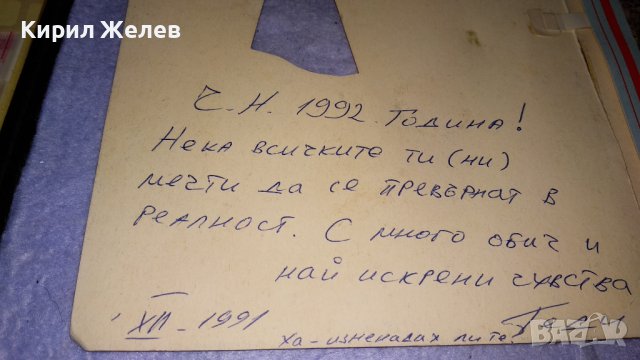 Кирил Желев
Ч.Н. 1992 Година!
Нека всичките ти (ни)
мечти да се превърнат в
реалност. С много обич и
най искрени чувства
XII - 1991
Ха-изненадах ли те